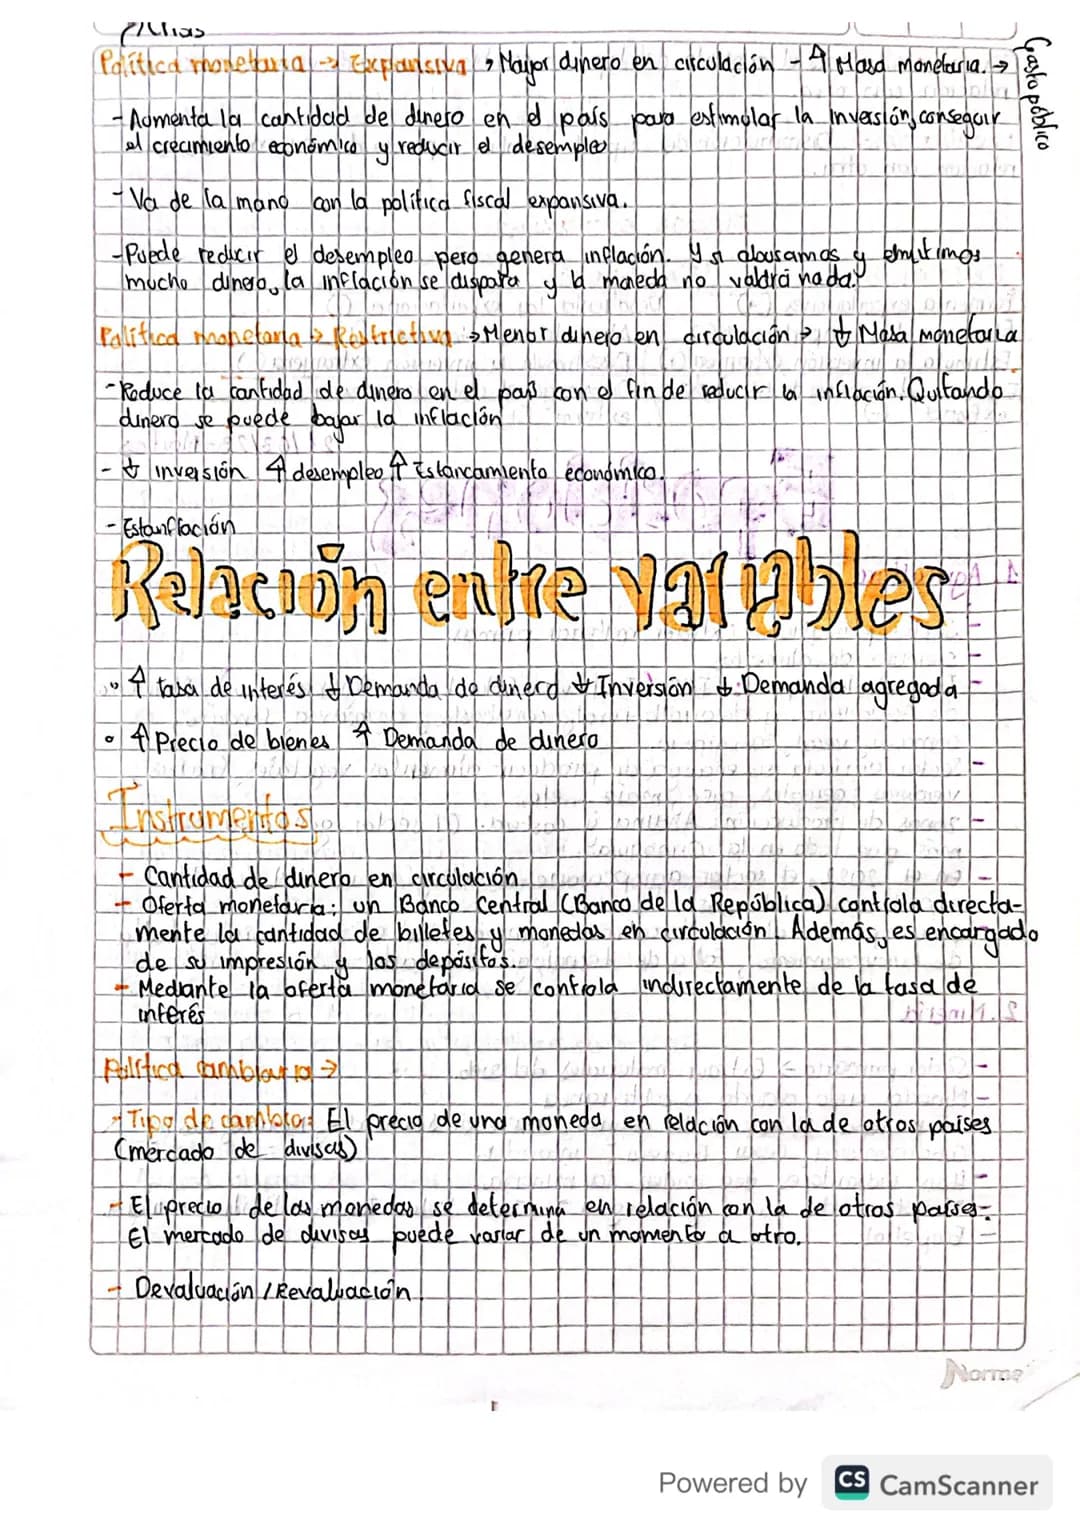 Política monetaria → Expansiva → Mayor dinero en circulación - ↑ Masa monetaria. → Gasto público
- Aumenta la cantidad de dinero en el país para estimular la inversión, conseguir
el crecimiento económico y reducir el desempleo
- Va de la mano con la política fiscal expansiva.
- Puede reducir el desempleo pero genera inflación. Y si abusamos y emitimos
mucho dinero, la inflación se dispara y la moneda no valdrá nada.
Política monetaria → Restrictiva → Menor dinero en circulación → ↓ Masa monetaria
- Reduce la cantidad de dinero en el país con el fin de reducir la inflación. Quitando
dinero se puede bajar la inflación
- ↓ inversión ↑ desempleo ↑ Estancamiento económico.
- Estanflación
Relación entre variables
◦ ↑ tasa de interés ↓ Demanda de dinero ↓ Inversión ↓ Demanda agregada
◦ ↑ Precio de bienes ↑ Demanda de dinero
Instrumentos
- Cantidad de dinero en circulación
- Oferta monetaria: un Banco Central (Banco de la República) controla directa-
mente la cantidad de billetes y monedas en circulación. Además, es encargado
de su impresión y los depósitos.
- Mediante la oferta monetaria se controla indirectamente de la tasa de
interés
Política cambiaria →
- Tipo de cambio: El precio de una moneda en relación con la de otros países
(mercado de divisas)
- El precio de las monedas se determina en relación con la de otros países.
El mercado de divisas puede variar de un momento a otro.
- Devaluación / Revaluación.
Norma
Powered by CS CamScanner